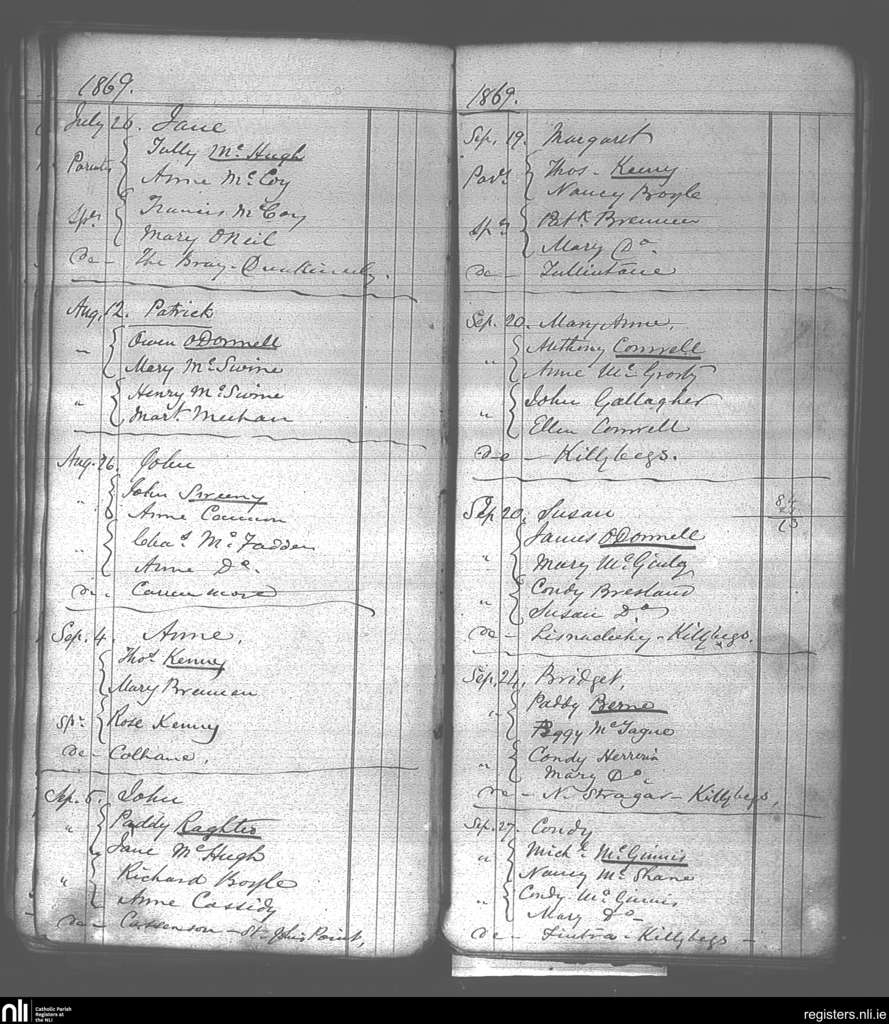 1869.
July 20. Jane
Parents Tully McHugh
Anne McCoy
Sprs Francis McCoy
Mary ONeil
de - The Bray - Dunkinnely.
Aug. 12. Patrick
" Owen ODonnell
Mary McSwine
" Henry McSwine
Mart. Meehan
Aug. 26. John
" John Sweeny
Anne Cannon
" Chas McFadden
Anne Do.
de
Sep. 4. Anne.
Thos Kenny
Mary Brennan
Spr Rose Kenny
de - Colhane,
Sep. 5. John
" Paddy
Jane McHugh
" Richard Boyle
Anne Cassidy
de - St. Johns Point,
1869.
Sep. 19. Margaret
Pars Thos - Keeny
Nancy Boyle
Sprs Patk Brennen
Mary Do
de - Tullintane
Sep. 20. Mary Anne,
" Anthony Conwell
Anne
" John Gallagher
Ellen Conwell
de - Killybegs.
84
13
Sep 20. Susan
James ODonnell
" Mary McGinly
" Condy Bresland
Susan Do
de - Killybegs.
Sep. 24. Bridget,
" Paddy Berne
Peggy McTague
" Condy
Mary Do.
de - N. Stragar - Killybegs,
Sep. 27. Condy
" Michl McGinnis
Nancy McShane
" Condy McGinnis
Mary Do -
de - Fintra - Killybegs -
nli
Catholic Parish
Registers at
the NLI
registers.nli.ie